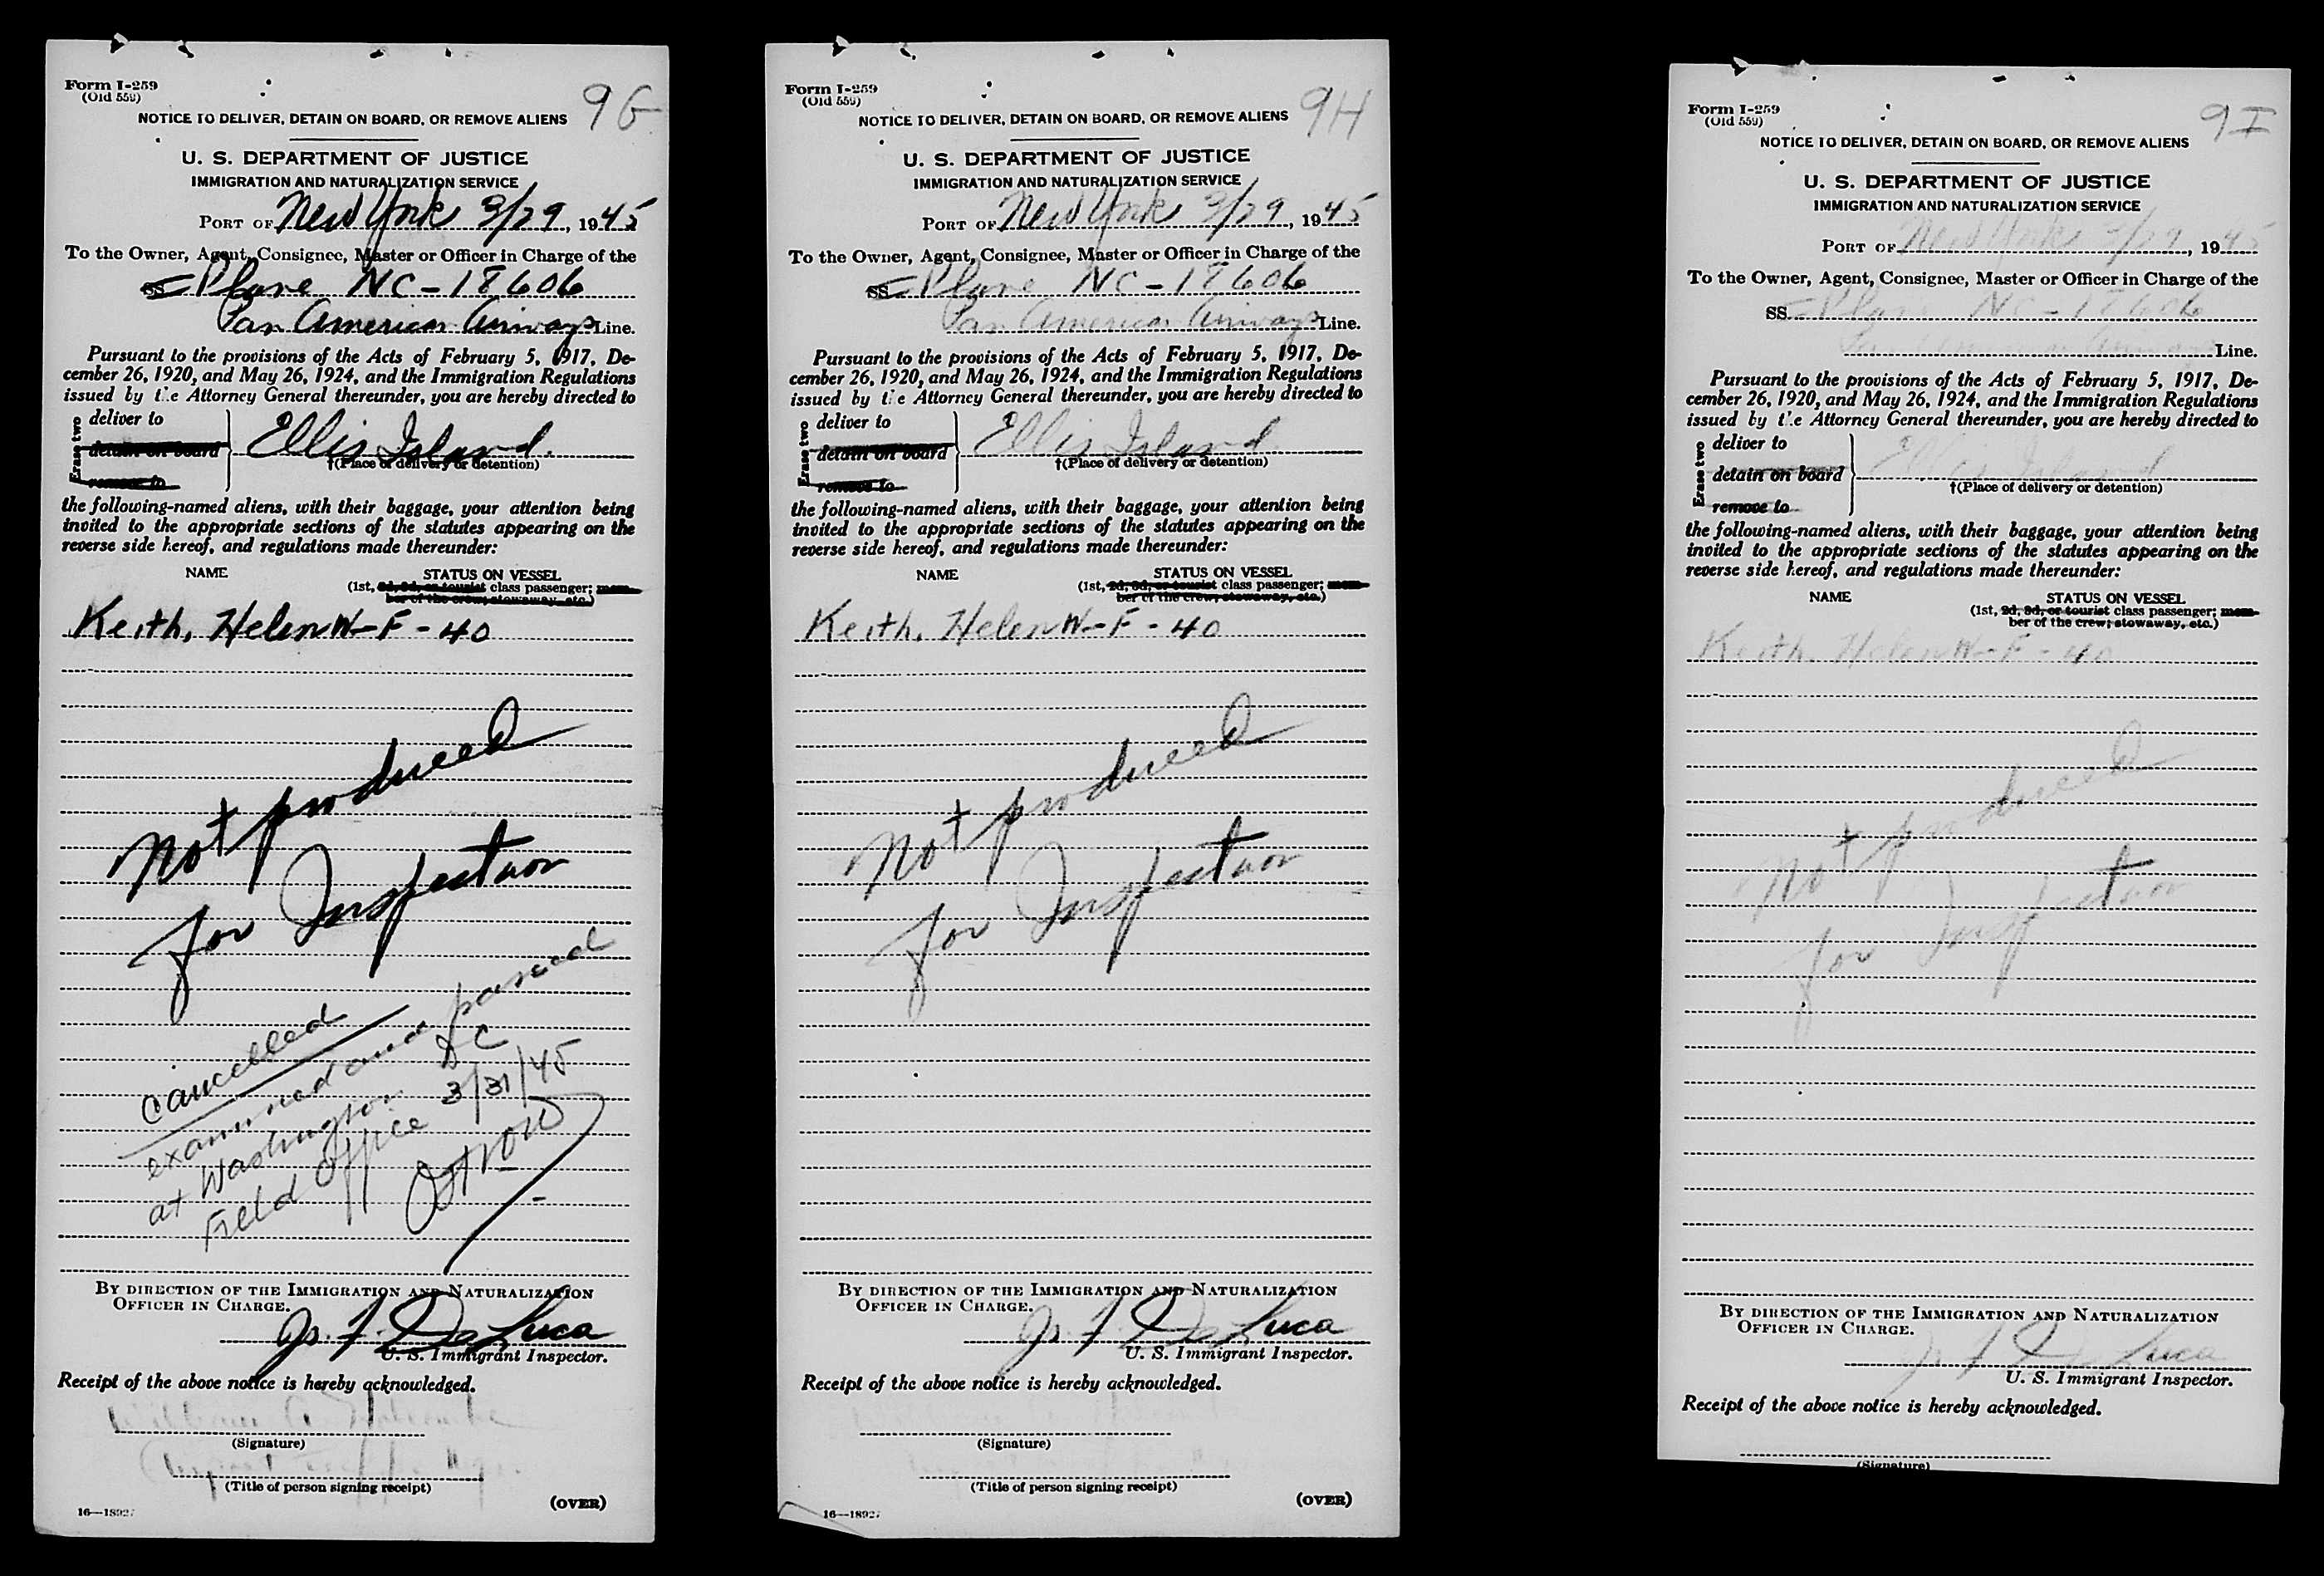 Form I-259
(Old 559)
9G
NOTICE TO DELIVER, DETAIN ON BOARD, OR REMOVE ALIENS
U. S. DEPARTMENT OF JUSTICE
IMMIGRATION AND NATURALIZATION SERVICE
PORT OF New York 3/29, 1945
To the Owner, Agent, Consignee, Master or Officer in Charge of the
SS Plane NC-18606
Pan American Airways Line.
Pursuant to the provisions of the Acts of February 5, 1917, De-
cember 26, 1920, and May 26, 1924, and the Immigration Regulations
issued by the Attorney General thereunder, you are hereby directed to
Erase two
deliver to
detain on board
remove to
Ellis Island.
†(Place of delivery or detention)
the following-named aliens, with their baggage, your attention being
invited to the appropriate sections of the statutes appearing on the
reverse side hereof, and regulations made thereunder:
NAME
STATUS ON VESSEL
(1st, 2d, 3d, or tourist class passenger; mem-
ber of the crew; stowaway, etc.)
Keith, Helen W-F-40
Not produced
for Inspection
Cancelled
examined and passed
at Washington DC
Field Office 3/31/45
BY DIRECTION OF THE IMMIGRATION AND NATURALIZATION
OFFICER IN CHARGE.
Js. F. De Luca
U. S. Immigrant Inspector.
Receipt of the above notice is hereby acknowledged.
(Signature)
(Title of person signing receipt)
16—18927
(OVER)
Form I-259
(Old 559)
9H
NOTICE TO DELIVER, DETAIN ON BOARD, OR REMOVE ALIENS
U. S. DEPARTMENT OF JUSTICE
IMMIGRATION AND NATURALIZATION SERVICE
PORT OF New York 3/29, 1945
To the Owner, Agent, Consignee, Master or Officer in Charge of the
SS Plane NC-18606
Pan American Airways Line.
Pursuant to the provisions of the Acts of February 5, 1917, De-
cember 26, 1920, and May 26, 1924, and the Immigration Regulations
issued by the Attorney General thereunder, you are hereby directed to
Erase two
deliver to
detain on board
remove to
Ellis Island
†(Place of delivery or detention)
the following-named aliens, with their baggage, your attention being
invited to the appropriate sections of the statutes appearing on the
reverse side hereof, and regulations made thereunder:
NAME
STATUS ON VESSEL
(1st, 2d, 3d, or tourist class passenger; mem-
ber of the crew; stowaway, etc.)
Keith, Helen W-F-40
Not produced
for Inspection
BY DIRECTION OF THE IMMIGRATION AND NATURALIZATION
OFFICER IN CHARGE.
Js. F. De Luca
U. S. Immigrant Inspector.
Receipt of the above notice is hereby acknowledged.
(Signature)
(Title of person signing receipt)
16—18927
(OVER)
Form I-259
(Old 559)
9I
NOTICE TO DELIVER, DETAIN ON BOARD, OR REMOVE ALIENS
U. S. DEPARTMENT OF JUSTICE
IMMIGRATION AND NATURALIZATION SERVICE
PORT OF New York 3/29, 1945
To the Owner, Agent, Consignee, Master or Officer in Charge of the
SS Plane NC-18606
Pan American Airways Line.
Pursuant to the provisions of the Acts of February 5, 1917, De-
cember 26, 1920, and May 26, 1924, and the Immigration Regulations
issued by the Attorney General thereunder, you are hereby directed to
Erase two
deliver to
detain on board
remove to
Ellis Island
†(Place of delivery or detention)
the following-named aliens, with their baggage, your attention being
invited to the appropriate sections of the statutes appearing on the
reverse side hereof, and regulations made thereunder:
NAME
STATUS ON VESSEL
(1st, 2d, 3d, or tourist class passenger; mem-
ber of the crew; stowaway, etc.)
Keith, Helen W-F-40
Not produced
for Inspection
BY DIRECTION OF THE IMMIGRATION AND NATURALIZATION
OFFICER IN CHARGE.
Js. F. De Luca
U. S. Immigrant Inspector.
Receipt of the above notice is hereby acknowledged.
(Signature)